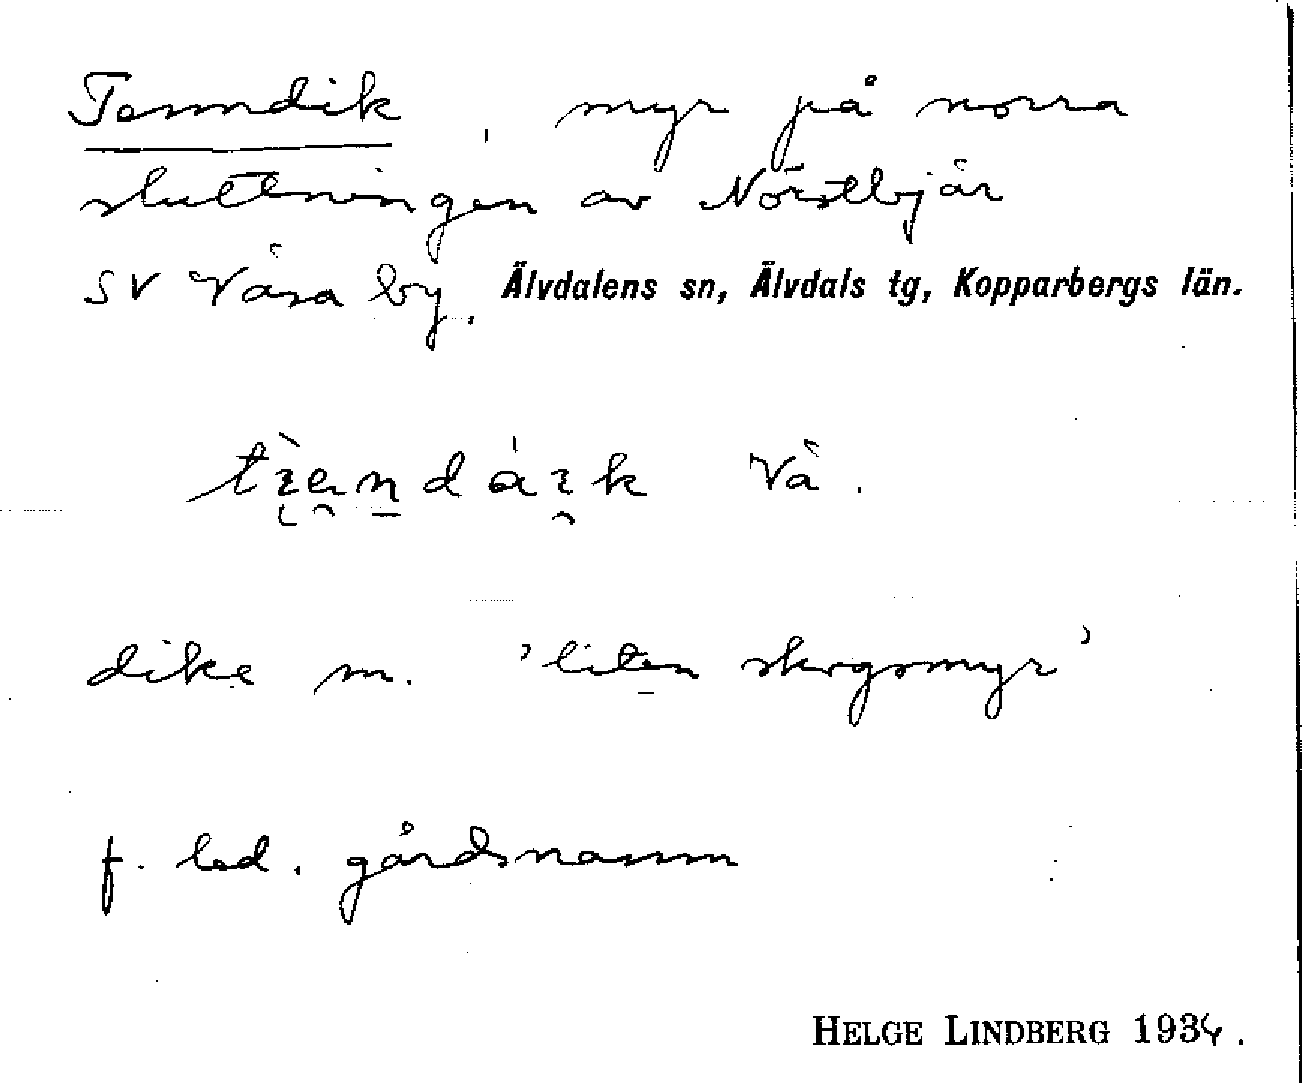 Tenndik, myr på norra
sluttningen av Nörstbjär
SV Våsa by. Älvdalens sn, Älvdals tg, Kopparbergs län.
Vå.
dike m. 'liten skogsmyr'
f. led. gårdsnamn
HELGE LINDBERG 1934.